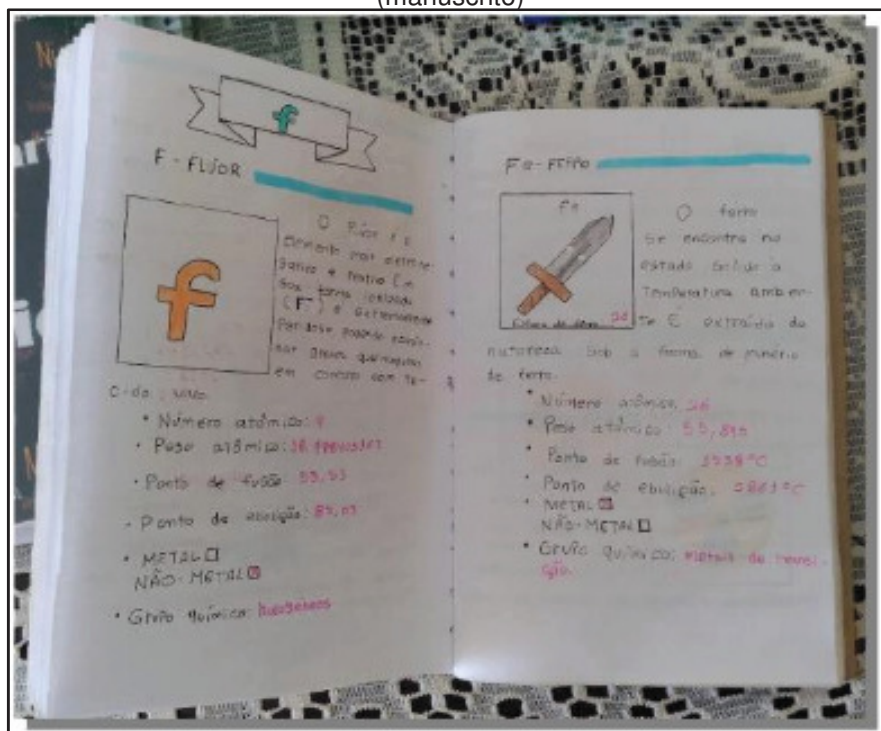 (manuscrito)
f
F - FLÚOR
f
O Flúor é o
elemento mais eletrone-
gativo e reativo Em
sua forma ionizada
(F⁻) é extremamente
em contato com te-
cido
• Número atômico: 9
• Peso atômico:
• Ponto de fusão 53,53
• Ponto de ebulição: 85,03
• METAL ☐
NÃO-METAL ☒
• Grupo químico: halogêneos
Fe - FERRO
Fe
26
O ferro
se encontra no
estado sólido a
Temperatura ambien-
te É extraído da
natureza sob a forma de minério
de ferro.
• Número atômico: 26
• Peso atômico: 55,845
• Ponto de fusão: 1538°C
• Ponto de ebulição: 2861°C
• METAL ☒
NÃO-METAL ☐
• Grupo químico: Metais de transi-
ção.